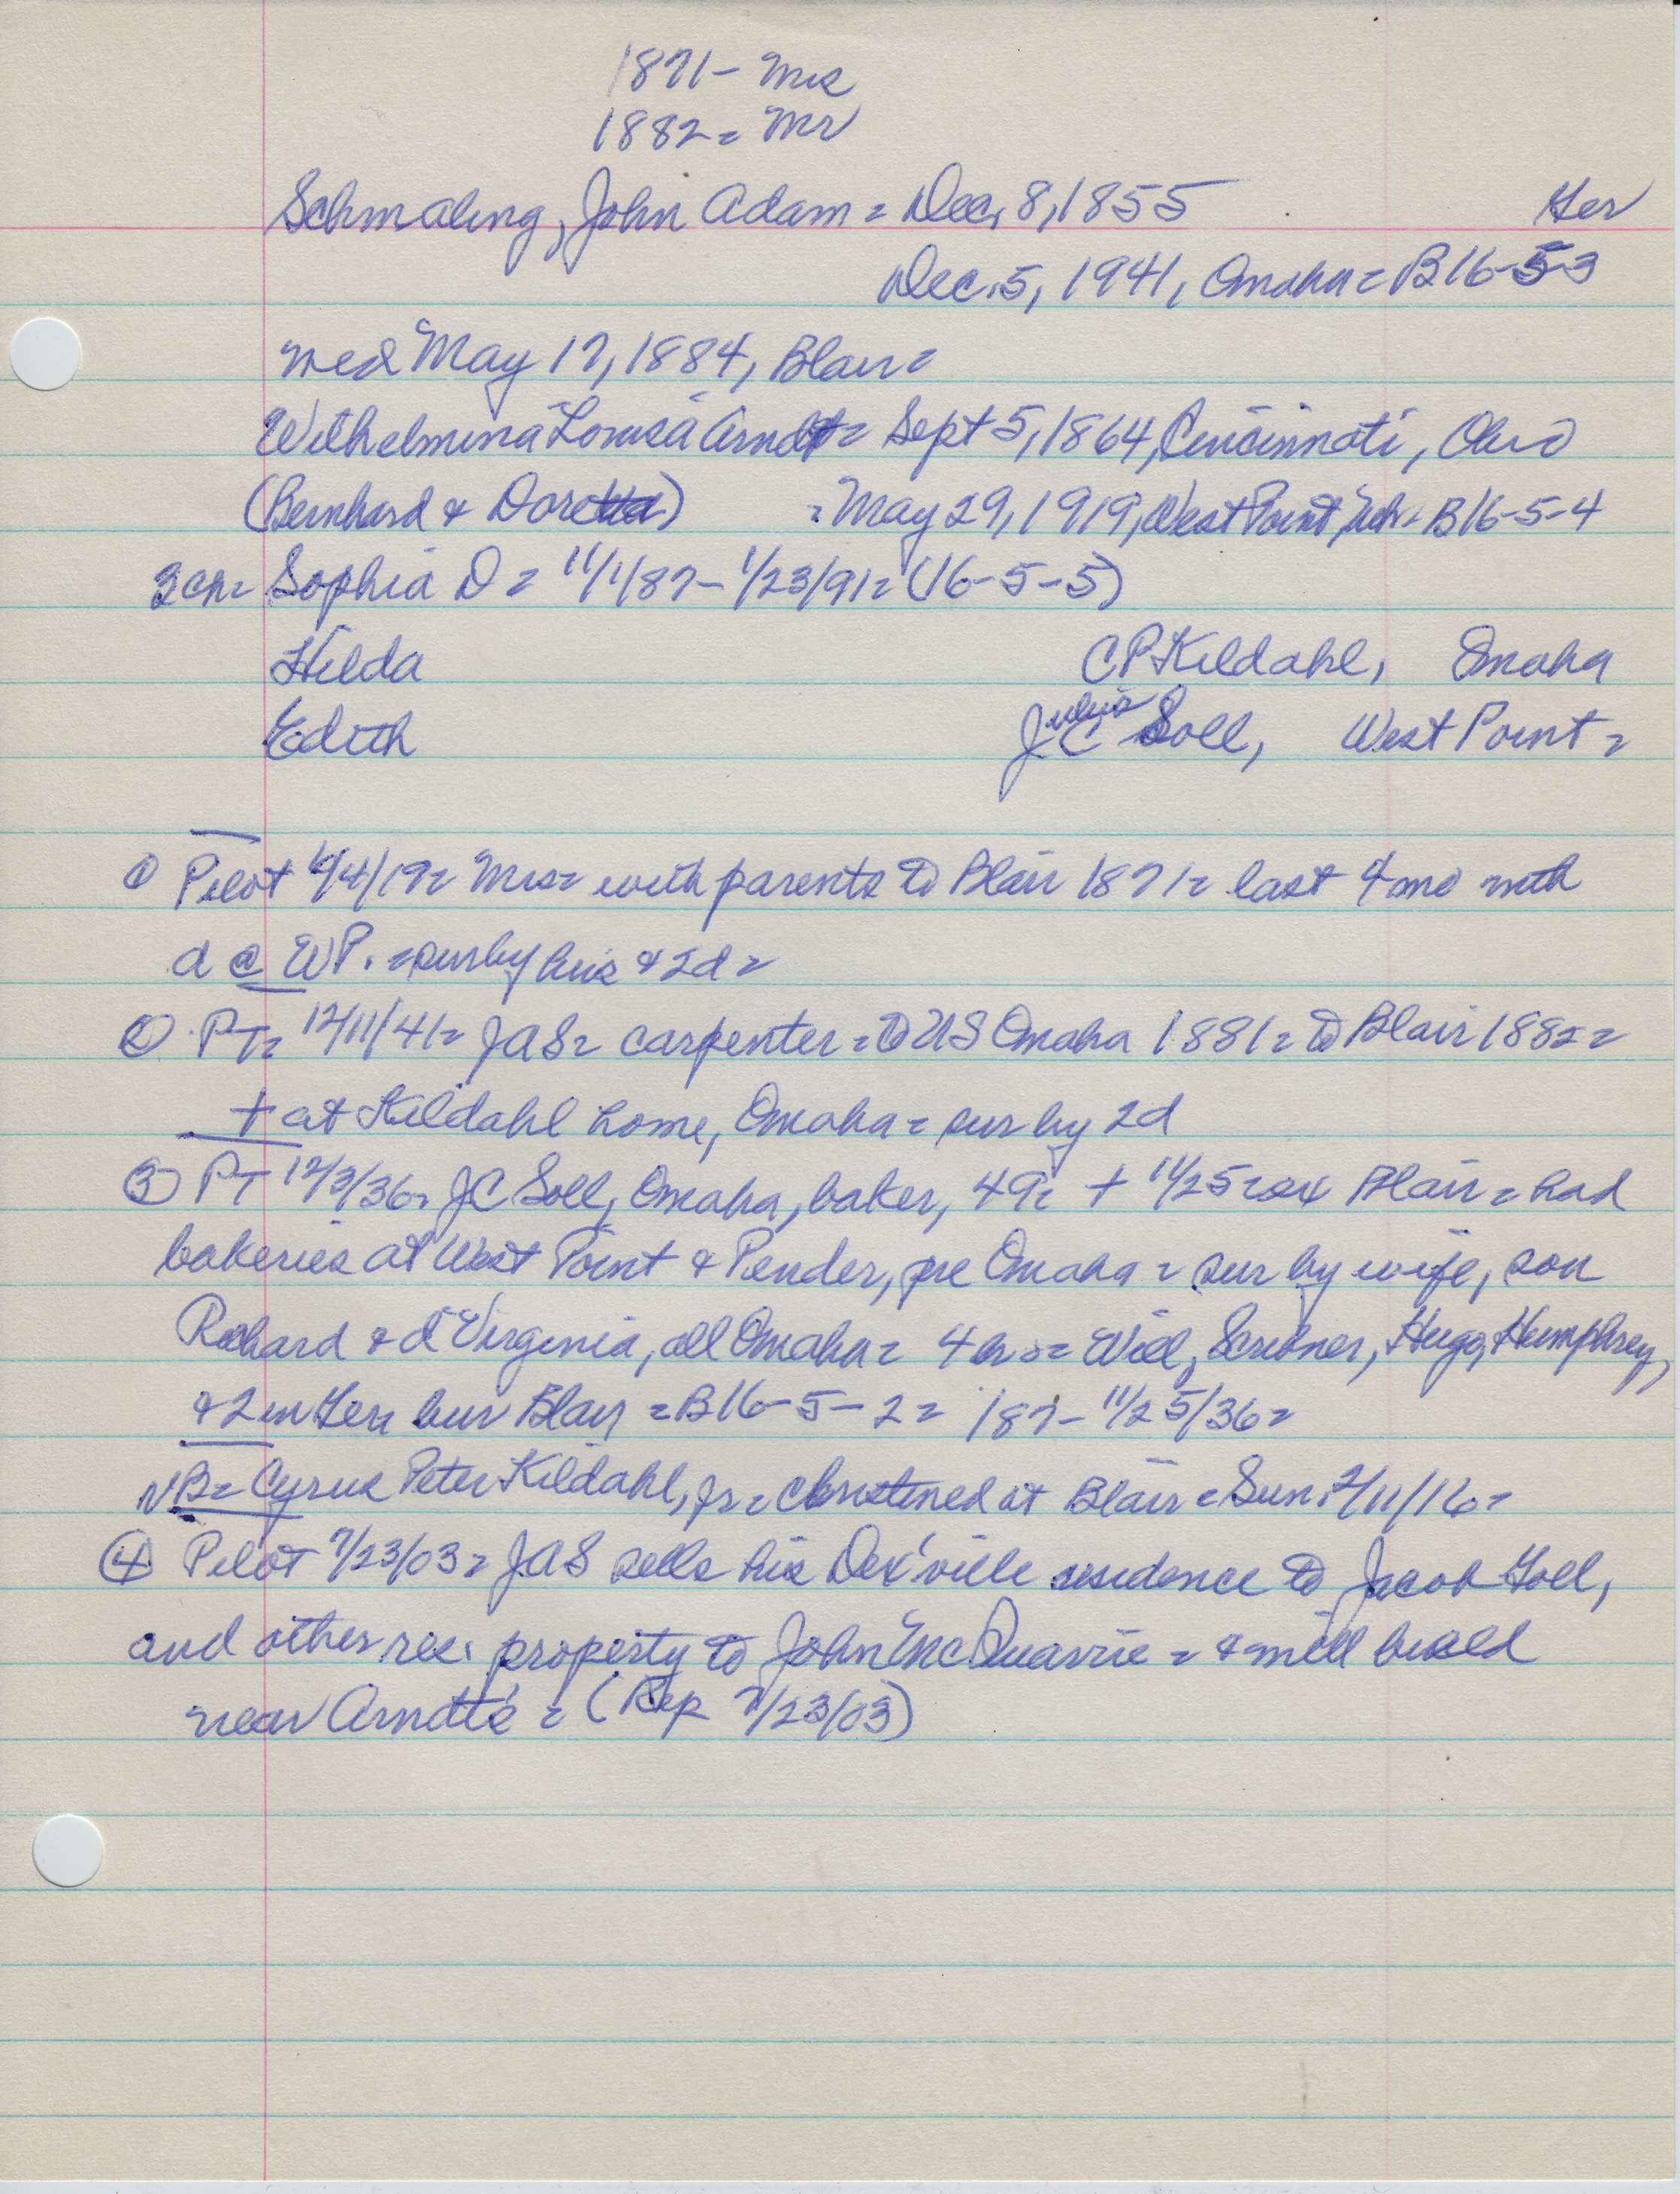 1871- Mrs
1882= Mr
Schmaling, John Adam = Dec. 8, 1855 Ger
Dec. 5, 1941, Omaha = B16-5-3
wed May 17, 1884, Blair=
Wilhelmina Louisa Arndt= Sept 5, 1864, Cincinnati, Ohio
(Bernhard & Doretta) = May 29, 1919, West Point, Neb= B16-5-4
3 ch= Sophia D = 11/1/87- 1/23/91= (16-5-5)
Hilda CP Kildahl, Omaha
Edith Julius
JC Soll, West Point =
① Pilot 6/4/19= Mrs= with parents to Blair 1871= last 4 mo with
d @ WP. = sur by hus & 2d =
② PT= 12/11/41= JAS= carpenter = to US Omaha 1881= to Blair 1882=
+ at Kildahl home, Omaha = sur by 2d
③ PT 12/3/36= JC Soll, Omaha, baker, 49= + 11/25 = Blair = had
bakeries at West Point & Pender, pre Omaha = sur by wife, son
Richard & d Virginia, all Omaha = 4 bros= Will, Scribner, Hugo, Humphrey,
& 2 in Ger= bur Blair = B16-5-2= 187- 11/25/36=
NB= Cyrus Peter Kildahl, jr= christened at Blair = Sun. 2/11/16=
④ Pilot 7/23/03= JAS sells his Dex'ville residence to Jacob Goll,
and other res. property to John McQuarrie = & will build
near Arndts' = (Rep 7/23/03)